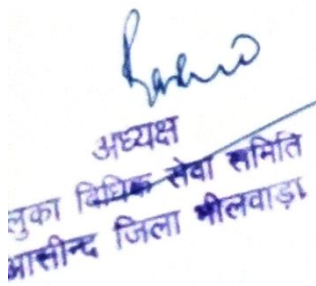 अध्यक्ष
लुका विधिक सेवा समिति
आसीन्द जिला भीलवाड़ा